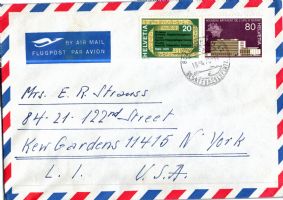 BY AIR MAIL
FLUGPOST PAR AVION
HELVETIA
20
80
HELVETIA
Mrs. E. R. Strauss
84-21-122nd Street
Kew Gardens 11415 N. York
L. I. U.S.A.